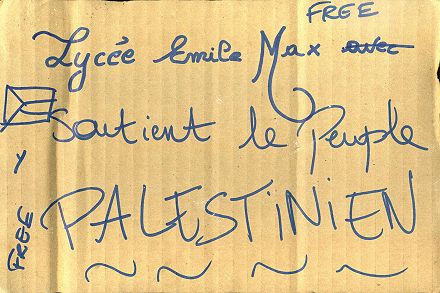 FREE
Lycée Emile Max avec
Soutient le Peuple
PALESTINIEN
FREE Y